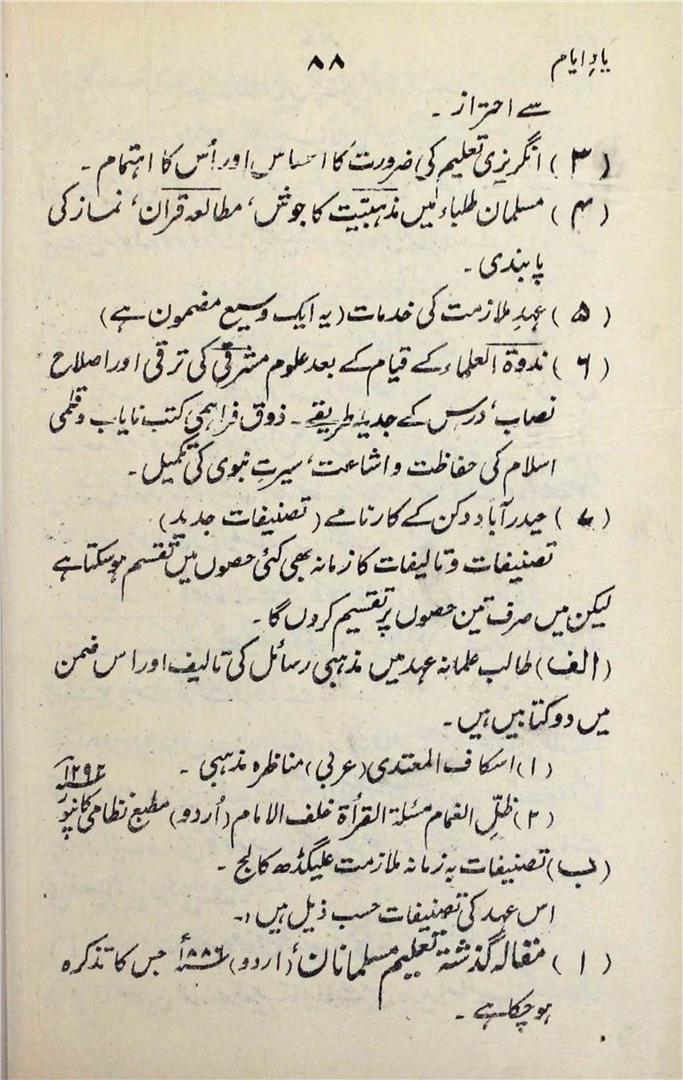 یادِ ایام ۸۸
سے احتراز ۔
(۳) انگریزی تعلیم کی ضرورت کا احساس اور اُس کا اہتمام ۔
(۴) مسلمان طلباء میں مذہبیت کا جوش، مطالعہ قرآن، نماز کی
پابندی ۔
(۵) عہدِ ملازمت کی خدمات (یہ ایک وسیع مضمون ہے)
(۶) ندوۃ العلماء کے قیام کے بعد علوم مشرقی کی ترقی اور اصلاح
نصاب، درس کے جدید طریقے ۔ ذوق فراہمی کتب نایاب و قلمی
اسلام کی حفاظت و اشاعت، سیرتِ نبوی کی تکمیل ۔
(۷) حیدرآباد دکن کے کارنامے (تصنیفات جدید)
تصنیفات و تالیفات کا زمانہ بھی کئی حصوں میں تقسیم ہو سکتا ہے
لیکن میں صرف تین حصوں پر تقسیم کروں گا ۔
(الف) طالب علمانہ عہد میں مذہبی رسائل کی تالیف اور اس ضمن
میں دو کتابیں ہیں ۔
(۱) اسکاف المعتدی (عربی) مناظرہ مذہبی ۔
(۲) ظلّ الغمام مسئلۃ القرأۃ خلف الامام (اُردو) مطبع نظامی کانپور ۱۲۹۲
(ب) تصنیفات بہ زمانہ ملازمت علیگڈھ کالج ۔
اس عہد کی تصنیفات حسب ذیل ہیں :۔
(۱) مقالہ گذشتہ تعلیم مسلمانان (اردو) ۱۸۸۶ء جس کا تذکرہ
ہو چکا ہے ۔